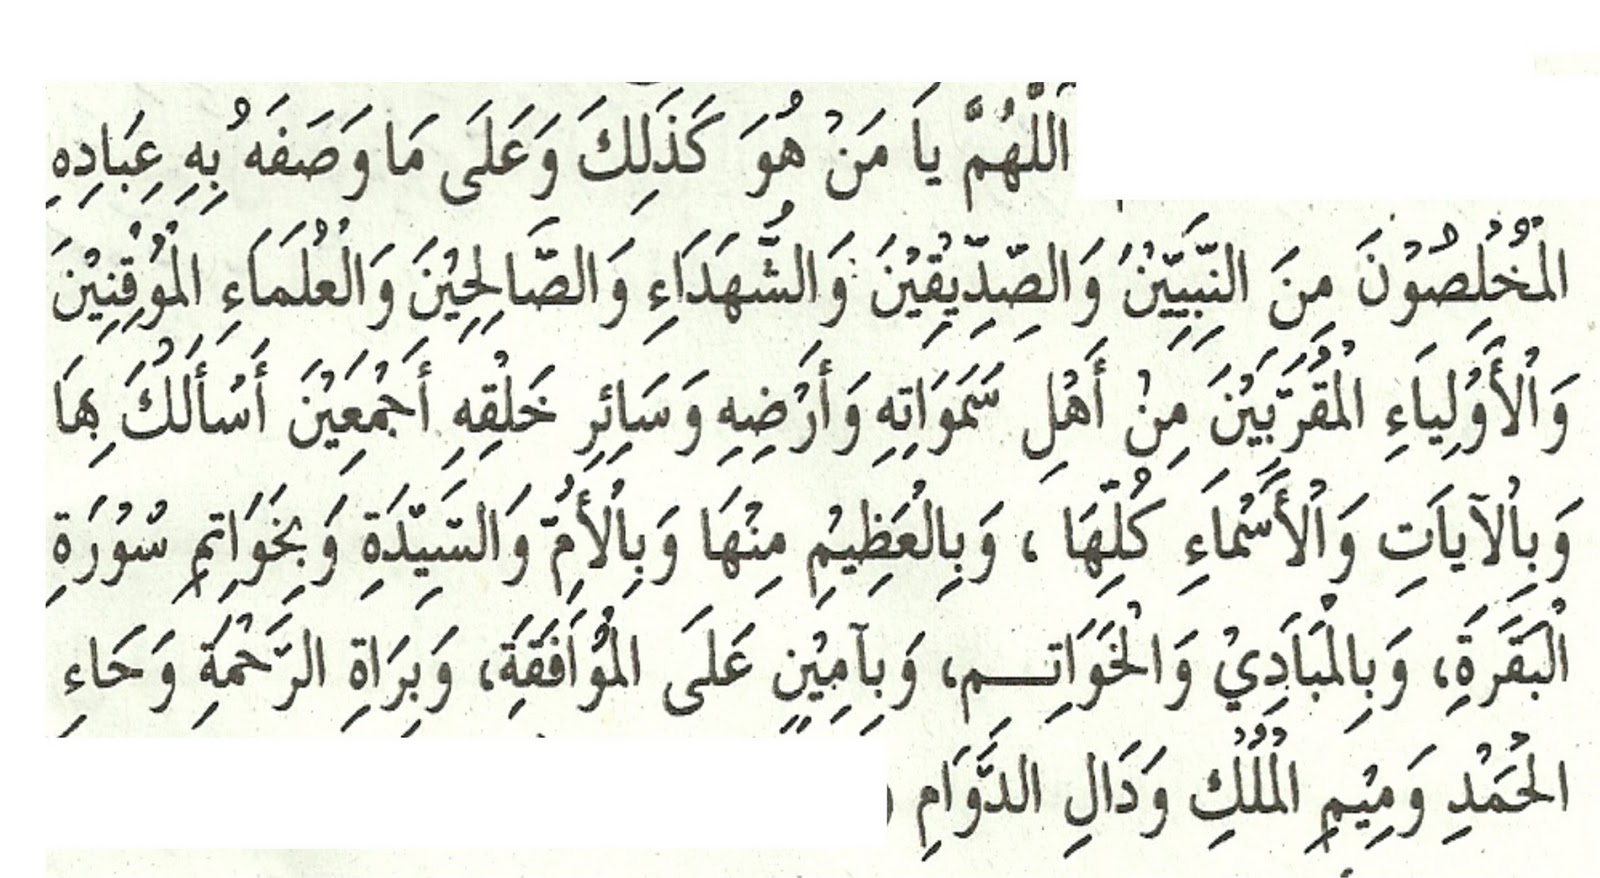 اَللّٰهُمَّ يَا مَنْ هُوَ كَذَلِكَ وَعَلَى مَا وَصَفَهُ بِهِ عِبَادِهِ
الْمُخْلِصُوْنَ مِنَ النَّبِيِّيْنَ وَالصِّدِّيْقِيْنَ وَالشُّهَدَاءِ وَالصَّالِحِيْنَ وَالْعُلَمَاءِ الْمُوْقِنِيْنَ
وَالْأَوْلِيَاءِ الْمُقَرَّبِيْنَ مِنْ أَهْلِ سَمَوَاتِهِ وَأَرْضِهِ وَسَائِرِ خَلْقِهِ أَجْمَعِيْنَ أَسْأَلُكَ بِهَا
وَبِالْآيَاتِ وَالْأَسْمَاءِ كُلِّهَا ، وَبِالْعَظِيْمِ مِنْهَا وَبِالْأُمِّ وَالسَّيِّدَةِ وَبِخَوَاتِمِ سُوْرَةِ
الْبَقَرَةِ، وَبِالْمَبَادِيْ وَالْخَوَاتِمِ، وَبِآمِيْنٍ عَلَى الْمُوَافَقَةِ، وَبِرَاةِ الرَّحْمَةِ وَحَاءِ
الْحَمْدِ وَمِيْمِ الْمُلْكِ وَدَالِ الدَّوَامِ